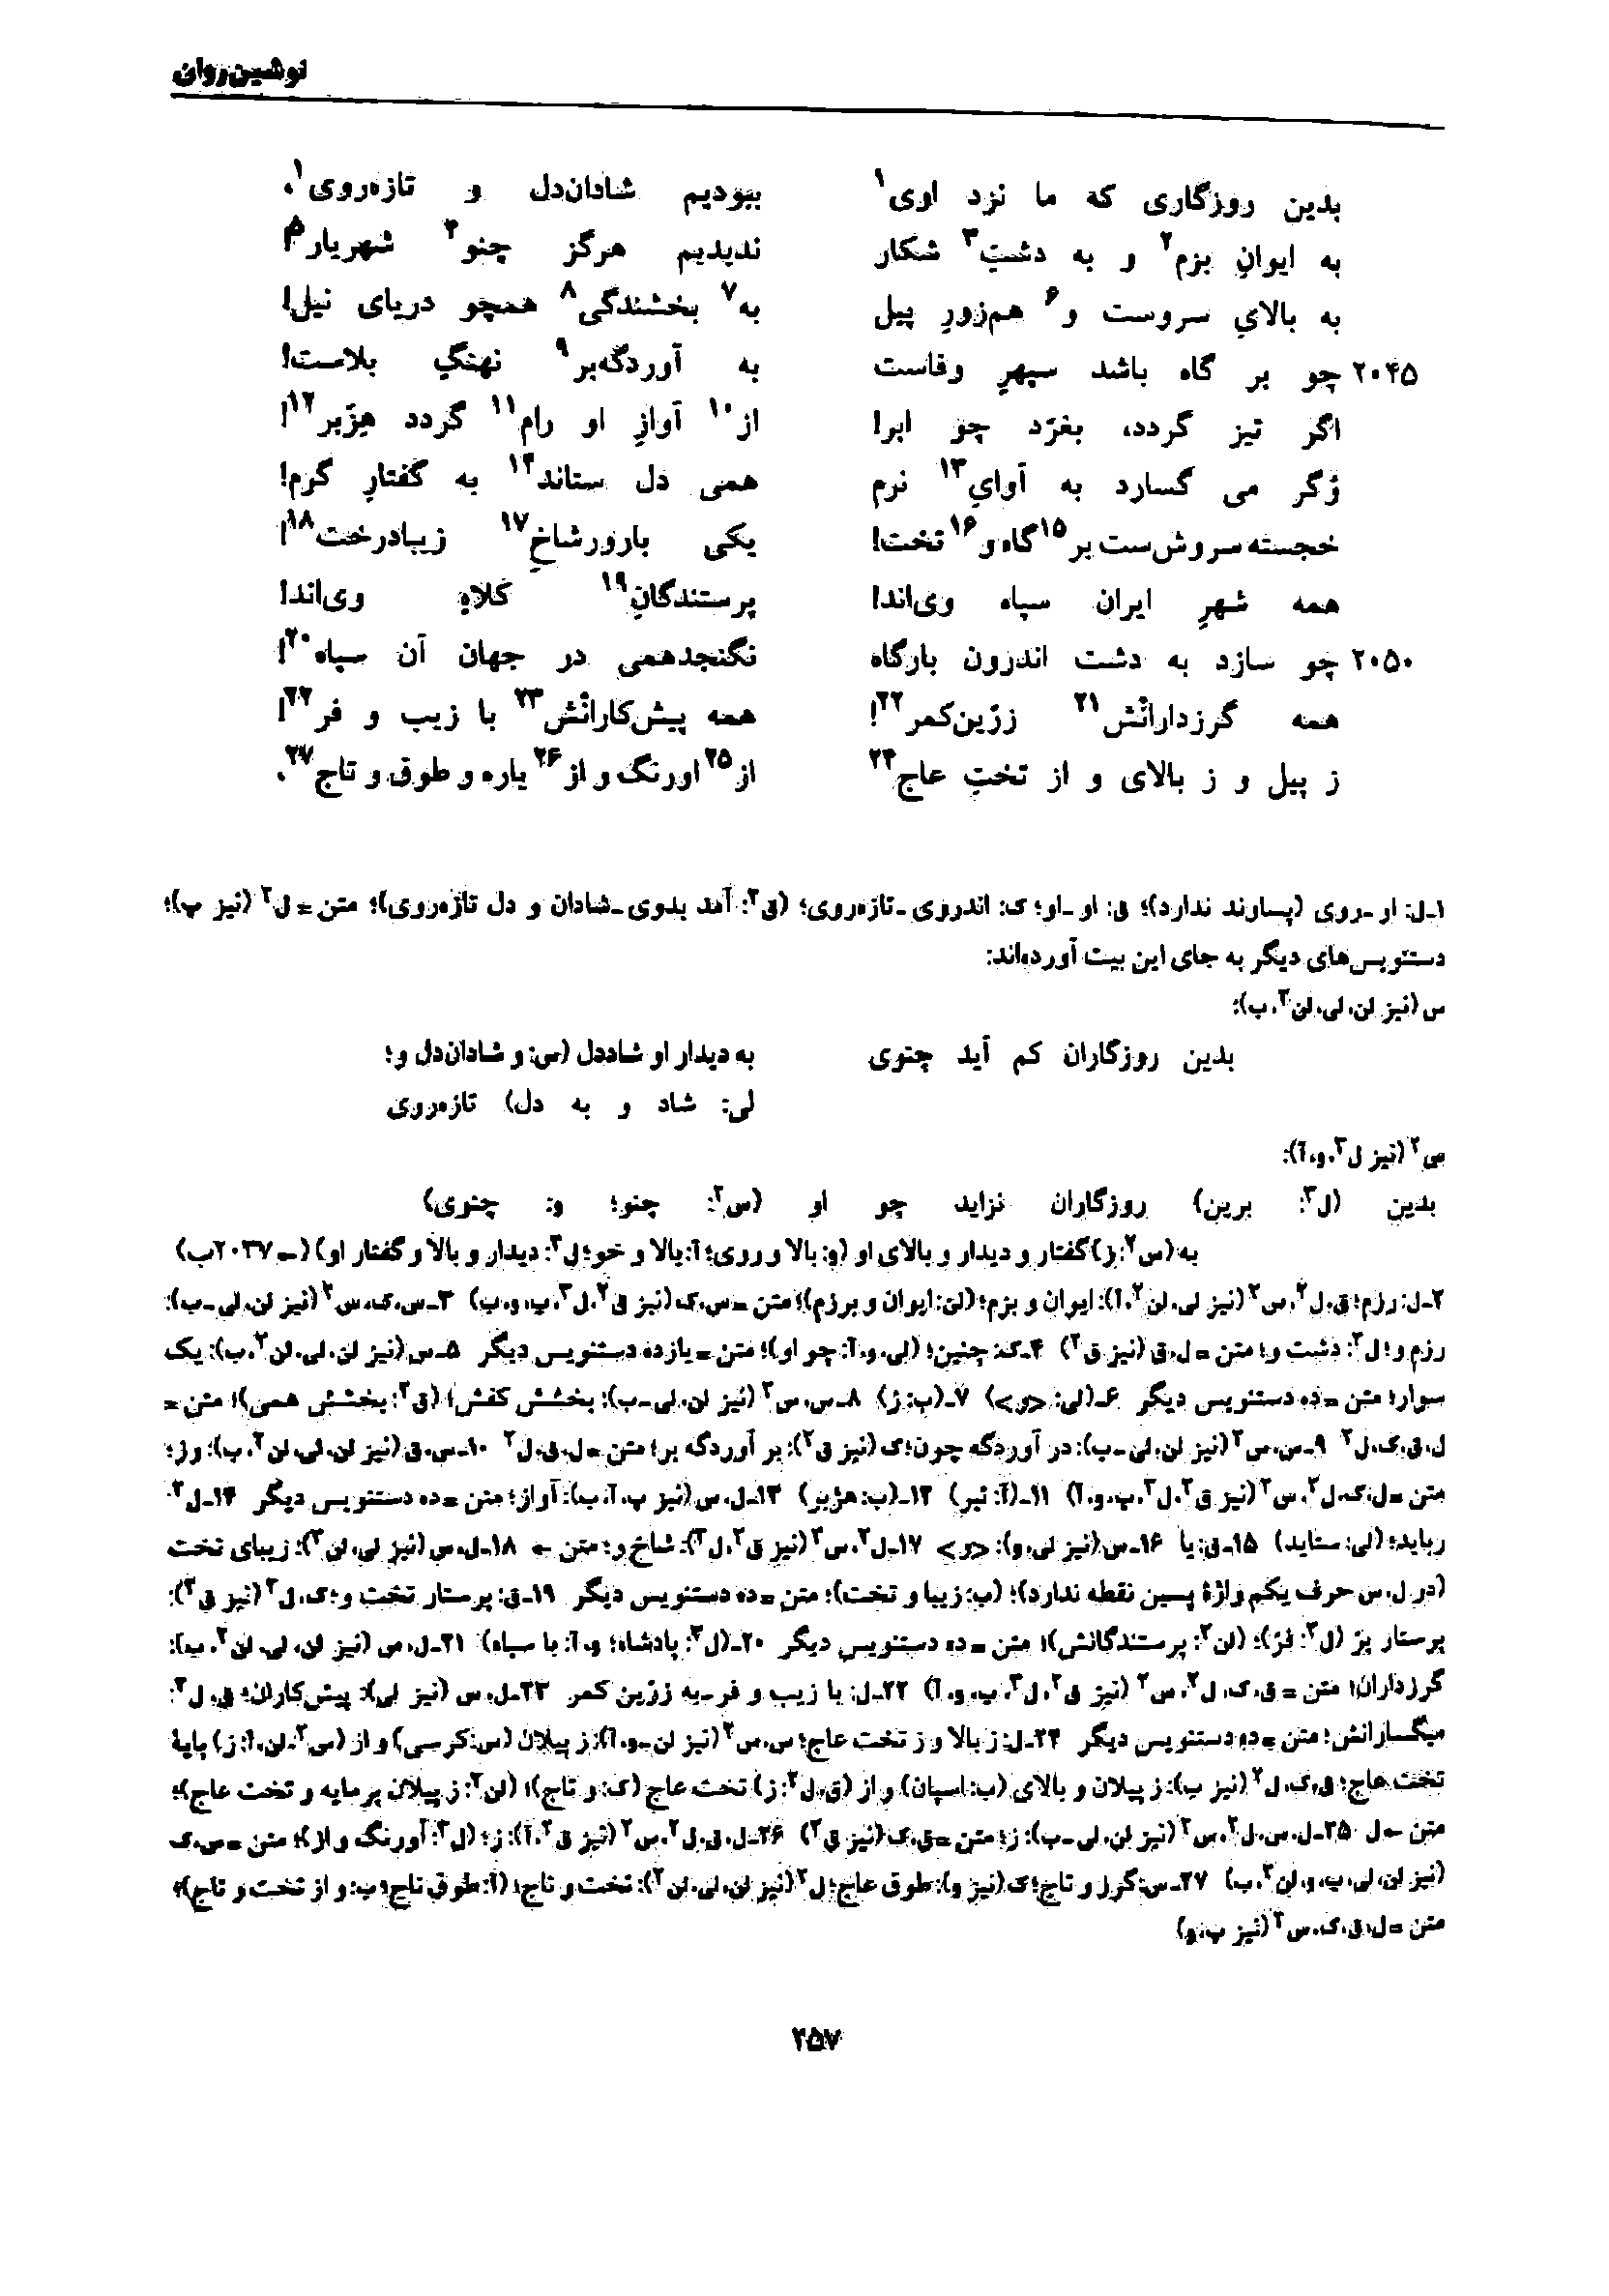 نوشین‌روان
بدین روزگاری که ما نزد اوی۱ ببودیم شادان‌دل و تازه‌روی۱،
به ایوانِ بزم۲ و به دشتِ۳ شکار ندیدیم هرگز چنو۴ شهریار۵!
به بالایِ سروست و۶ هم‌زورِ پیل به۷ بخشندگی۸ همچو دریای نیل!
۲۰۴۵ چو بر گاه باشد سپهرِ وفاست به آوردگه‌بر۹ نهنگِ بلاست!
اگر تیز گردد، بغرّد چو ابر! از۱۰ آوازِ او رام۱۱ گردد هِزَبر۱۲!
وُگر می گسارد به آوایِ۱۳ نرم همی دل ستاند۱۴ به گفتارِ گرم!
خجسته سروش‌ست بر۱۵ گاه و۱۶ تخت! یکی بارورشاخِ۱۷ زیبادرخت۱۸!
همه شهرِ ایران سپاه وی‌اند! پرستندگانِ۱۹ کلاهِ وی‌اند!
۲۰۵۰ چو سازد به دشت اندرون بارگاه نگنجدهمی در جهان آن سپاه۲۰!
همه گرزدارانْش۲۱ زرّین‌کمر۲۲! همه پیش‌کارانْش۲۳ با زیب و فر۲۲!
ز پیل و ز بالای و از تختِ عاج۲۴ از۲۵ اورنگ و از۲۶ یاره و طوق و تاج۲۷،
۱ـ ل: ار ـ روی (پساوند ندارد)؛ ق: او ـ او؛ ک: اندروی ـ تازه‌روی؛ (ق۲: آمد بدوی ـ شادان و دل تازه‌روی)؛ متن = ل۲ (نیز پ)؛
دستنویس‌های دیگر به جای این بیت آورده‌اند:
س (نیز لن، لی، لن۲، ب):
بدین روزگاران کم آید چنوی به دیدار او شاددل (س: و شادان‌دل و؛
لی: شاد و به دل) تازه‌روی
س۲ (نیز ل۳، و، آ):
بدین (ل۳: برین) روزگاران نزاید چو او (س۲: چنو؛ و: چنوی)
به (س۲: ز) گفتار و دیدار و بالای او (و: بالا و روی؛ آ: بالا و خو؛ ل۳: دیدار و بالا و گفتار او) (← ۲۰۳۷ب)
۲ـ ل: رزم؛ ق، ل۲، س۲ (نیز لی، لن۲، آ): ایوان و بزم؛ (لن: ایوان و برزم)؛ متن = س، ک (نیز ق۲، ل۳، پ، و، ب) ۳ـ س، ک، س۲ (نیز لن، لی ـ ب):
رزم و؛ ل۲: دشت و؛ متن = ل، ق (نیز ق۲) ۴ـ ک: چنین؛ (لی، و، آ: چو او)؛ متن = یازده دستنویس دیگر ۵ـ س (نیز لن، لی، لن۲، ب): یک
سوار؛ متن = ده دستنویس دیگر ۶ـ (لی: <و>) ۷ـ (ب: ز) ۸ـ س، س۲ (نیز لن، لی ـ ب): بخشش کفش؛ (ق۲: بخشش همی)؛ متن =
ل، ق، ک، ل۲ ۹ـ س، س۲ (نیز لن، لی ـ ب): در آوردگه چون؛ ک (نیز ق۲): بر آوردگه بر؛ متن = ل، ق، ل۲ ۱۰ـ س، ق (نیز لن، لی، لن۲، ب): وز؛
متن = ل، ک، ل۲، س۲ (نیز ق۲، ل۳، پ، و، آ) ۱۱ـ (آ: تیر) ۱۲ـ (ب: هژبر) ۱۳ـ ل، س (نیز پ، آ، ب): آواز؛ متن = ده دستنویس دیگر ۱۴ـ ل۲:
رباید؛ (لی: ستاید) ۱۵ـ ق: یا ۱۶ـ س (نیز لی، و): <و> ۱۷ـ ل۲، س۲ (نیز ق۲، ل۳): شاخ و؛ متن ← ۱۸ـ ل، س (نیز لی، لن۲): زیبای تخت
(در ل، س حرف یکم واژهٔ پسین نقطه ندارد)؛ (ب: زیبا و تخت)؛ متن = ده دستنویس دیگر ۱۹ـ ق: پرستار تخت و؛ ک، ل۲ (نیز ق۲):
پرستار پرّ (ل۲: فرّ)؛ (لن۲: پرستندگانش)؛ متن = ده دستنویس دیگر ۲۰ـ (ل۳: پادشاه؛ و، آ: با سپاه) ۲۱ـ ل، س (نیز لن، لی، لن۲، ب):
گرزداران؛ متن = ق، ک، ل۲، س۲ (نیز ق۲، ل۳، پ، و، آ) ۲۲ـ ل: با زیب و فر ـ به زرّین کمر ۲۳ـ ل، س (نیز لی): پیش‌کاران؛ ق، ل۲:
میگسارانش؛ متن = ده دستنویس دیگر ۲۴ـ ل: ز بالا و ز تخت عاج؛ س، س۲ (نیز لن ـ و، آ): ز پیلان (س: کرسی) و از (س۲، لن، آ: ز) پایهٔ
تخت عاج؛ ق، ک، ل۲ (نیز ب): ز پیلان و بالای (ب: اسپان) و از (ق، ل۲: ز) تخت عاج (ک: و تاج)؛ (لن۲: ز پیلان پرمایه و تخت عاج)؛
متن ← ل ۲۵ـ ل، س، ل۲، س۲ (نیز لن، لی ـ ب): ز؛ متن = ق، ک (نیز ق۲) ۲۶ـ ل، ق، ل۲، س۲ (نیز ق۲، آ): ز؛ (ل۳: آورنگ و از)؛ متن = س، ک
(نیز لن، لی، پ، و، لن۲، ب) ۲۷ـ س: گرز و تاج؛ ک (نیز و): طوق عاج؛ ل۲ (نیز لن، لی، لن۲): تخت و تاج؛ (آ: طوق تاج؛ ب: و از تخت و تاج)؛
متن = ل، ق، ک، س۲ (نیز پ، و)
۲۵۷